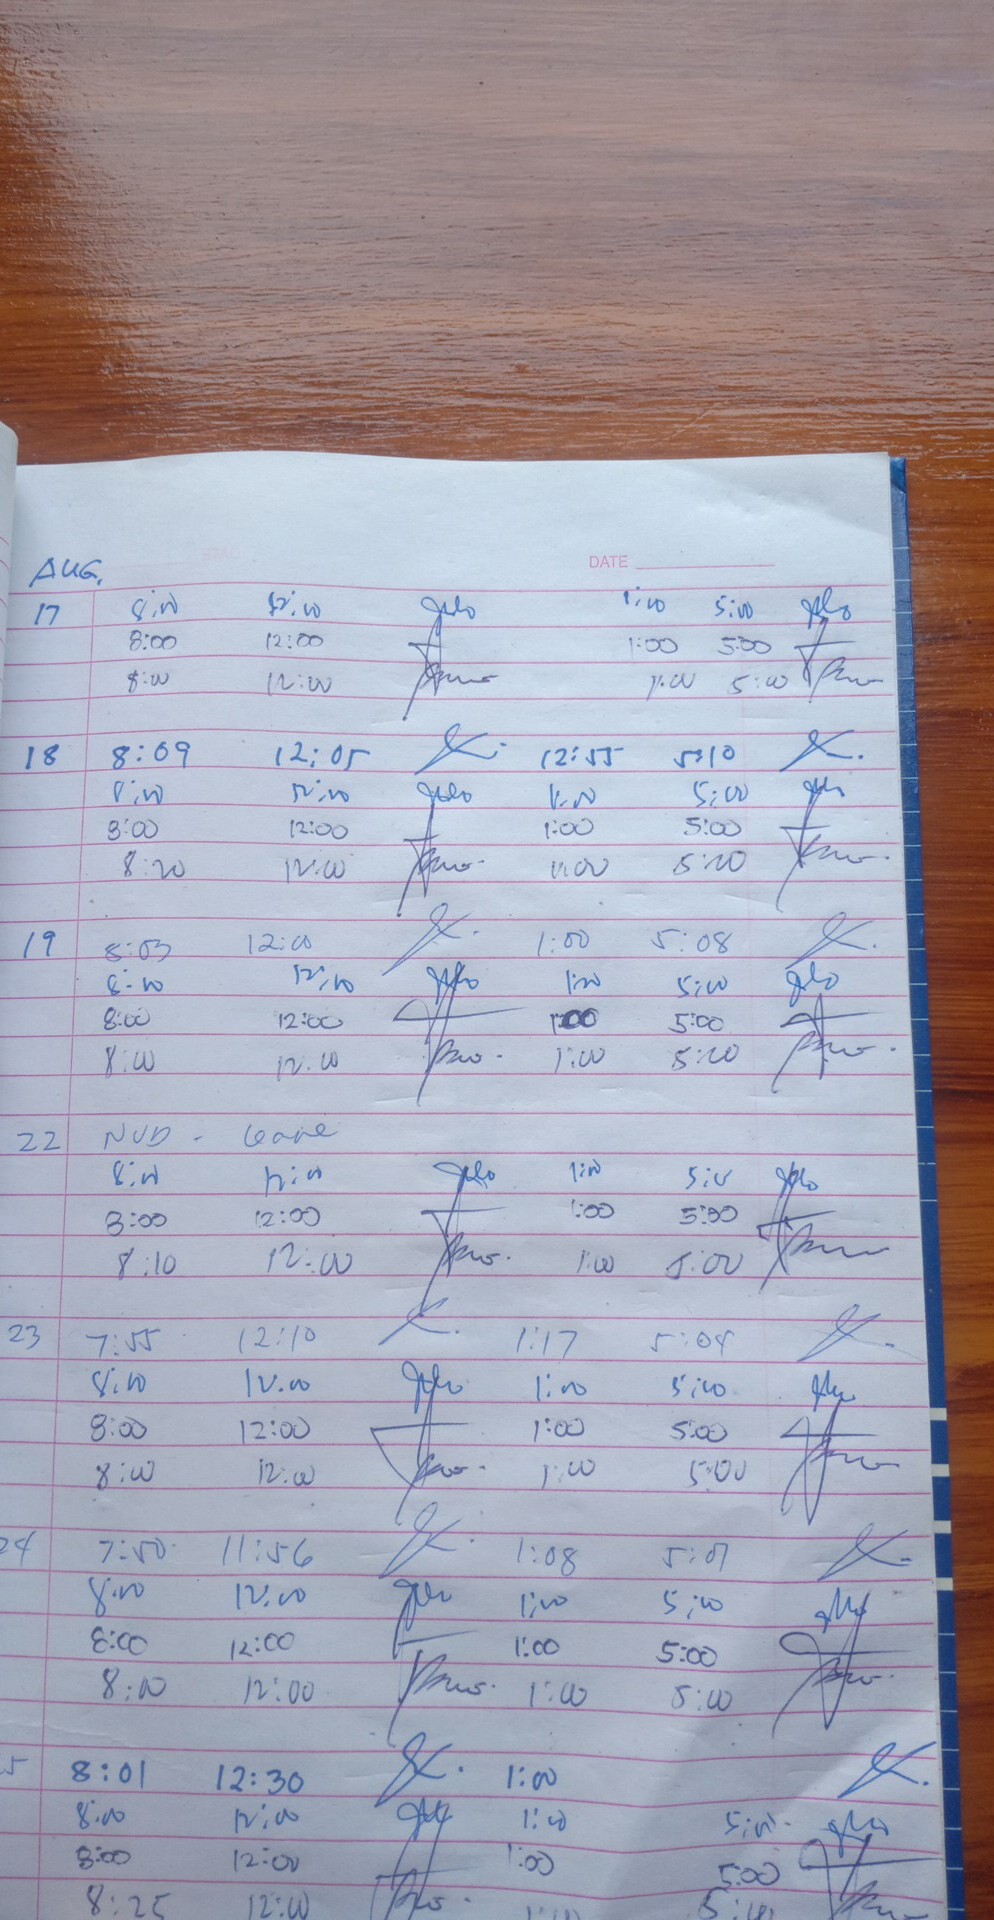 DATE
AUG.
17 8:00 12:00 1:00 5:00
8:00 12:00 1:00 5:00
8:00 12:00 1:00 5:00
18 8:09 12:05 12:55 5:10
8:00 12:00 1:00 5:00
8:00 12:00 1:00 5:00
8:20 12:00 1:00 5:20
19 8:03 12:00 1:00 5:08
8:00 12:00 1:00 5:00
8:00 12:00 1:00 5:00
8:00 12:00 1:00 5:20
22 - Leave
8:00 12:00 1:00 5:00
8:00 12:00 1:00 5:00
8:10 12:00 1:00 5:00
23 7:55 12:10 1:17 5:04
8:00 12:00 1:00 5:00
8:00 12:00 1:00 5:00
8:00 12:00 1:00 5:00
24 7:50 11:56 1:08 5:07
8:00 12:00 1:00 5:00
8:00 12:00 1:00 5:00
8:10 12:00 1:00 5:00
5 8:01 12:30 1:00
8:00 12:00 1:00 5:00
8:00 12:00 1:00 5:00
8:25 12:00